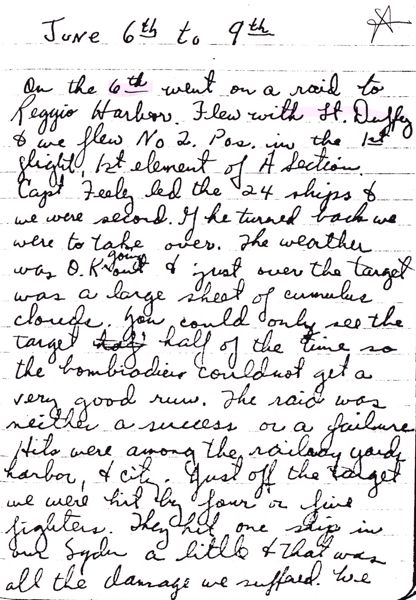 June 6th to 9th
On the 6th went on a raid to
Reggio Harbor. Flew with Lt. Duffy
& we flew No 2. Pos. in the 1st
flight, 1st element of A Section.
Capt Feely led the 24 ships &
we were second. If he turned back we
were to take over. The weather
was O.K. going out & just over the target
was a large sheet of cumulus
clouds. You could only see the
target half of the time so
the bombradiers couldnot get a
very good run. The raid was
neither a success or a failure
Hits were among the railway yards
harbor, & city. Just off the target
we were hit by four or five
fighters. They hit one ship in
our a little & that was
all the damage we suffered. We